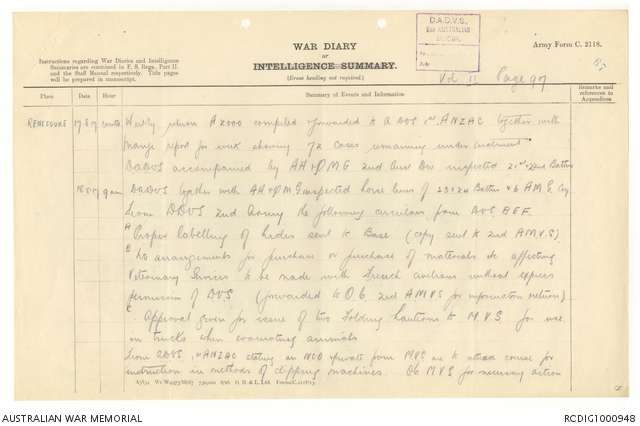 D.A.D.V.S.
2ND AUSTRALIAN
DIVISION.
No.
Date
WAR DIARY
or
INTELLIGENCE SUMMARY.
(Erase heading not required.)
Army Form C. 2118.
Instructions regarding War Diaries and Intelligence
Summaries are contained in F. S. Regs., Part II.
and the Staff Manual respectively. Title pages
will be prepared in manuscript.
Vol II Page 97
Place
Date
Hour
Summary of Events and Information
Remarks and
references to
Appendices
RENESCURE 17.8.17 contd Weekly return A2000 compiled & forwarded to A DVS 1st ANZAC together with
mange report for week showing 72 cases remaining under treatment
DADVS accompanied by AH & DMG 2nd Aust Div inspected 21st & 22nd Batteries
18.8.17 9am DADVS together with AH & DMG inspected horse lines of Batteries & 6 AMG Coy
From DDVS 2nd Army the following circulars from DVS BEF.
A Proper labelling of hides sent to Base (copy sent to 2nd AMVS)
B No arrangements for purchase or purchase of materials etc affecting
Veterinary Services to be made with French civilians without express
permission of DVS (forwarded to OC 2nd AMVS for information & return)
C Approval given for issue of two folding lanterns to MVS for use
on trucks when evacuating animals
From ADVS 1st ANZAC stating an NCO & private from MVS are to attend course for
instruction in methods of clipping machines. OC MVS for necessary action
AUSTRALIAN WAR MEMORIAL
RCDIG1000948